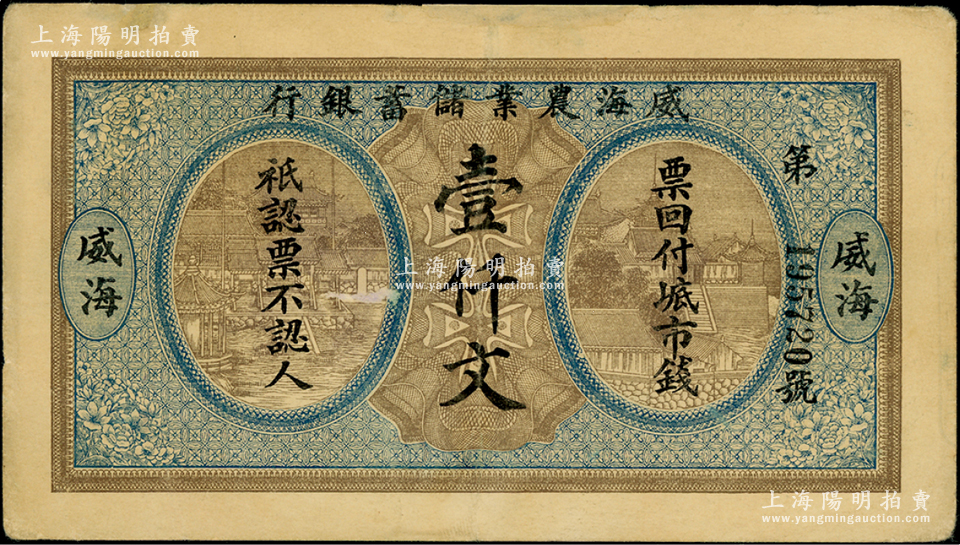 上海陽明拍賣
www.yangmingauction.com
威海農業儲蓄銀行
第195720號
威海
票回付城市錢
壹仟文
祇認票不認人
威海
上海陽明拍賣
www.yangmingauction.com
上海陽明拍賣
www.yangmingauction.com